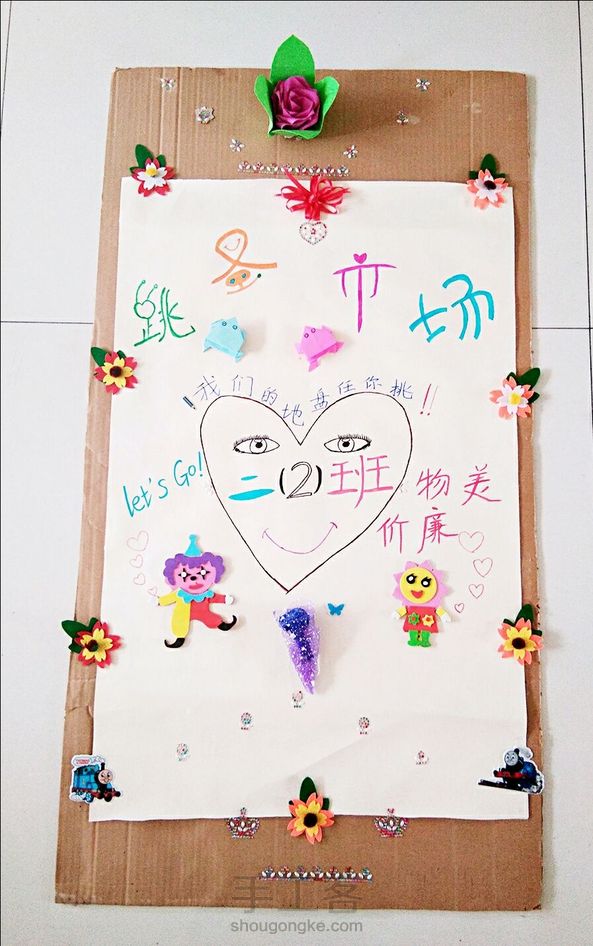 跳蚤市场
我们的地盘任你挑!!
let's Go!
二(2)班
物美
价廉
手工客
shougongke.com